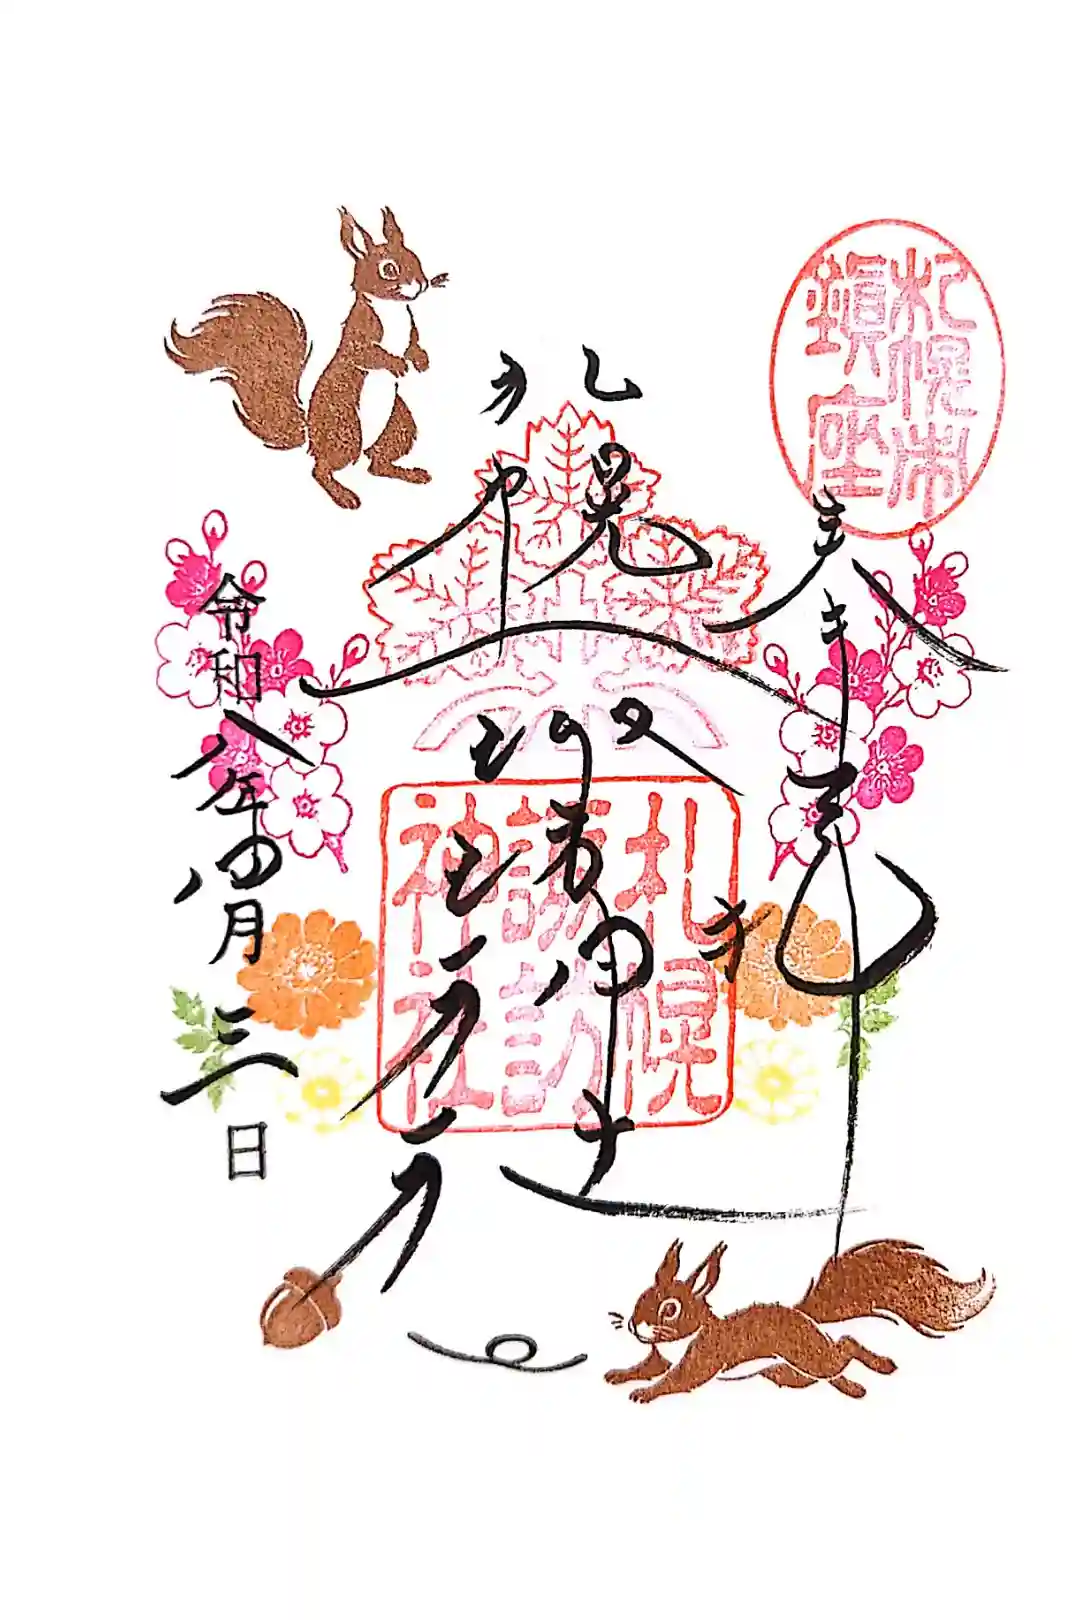 札幌市
鎮座
奉拝
札幌
諏訪
神社
札幌
諏訪神社
令和八年四月三日